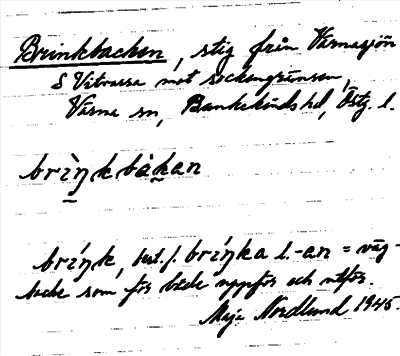 Brinkbacken, stig från Värnasjön
S Vitvassa mot sockengränsen,
Värna sn, Bankekinds hd, Östg. l.
brìŋkbàkan
brıńk, best. f. brıńka l. -an = väg-
backe som för både uppför och utför.
Maja Nordlund 1945.